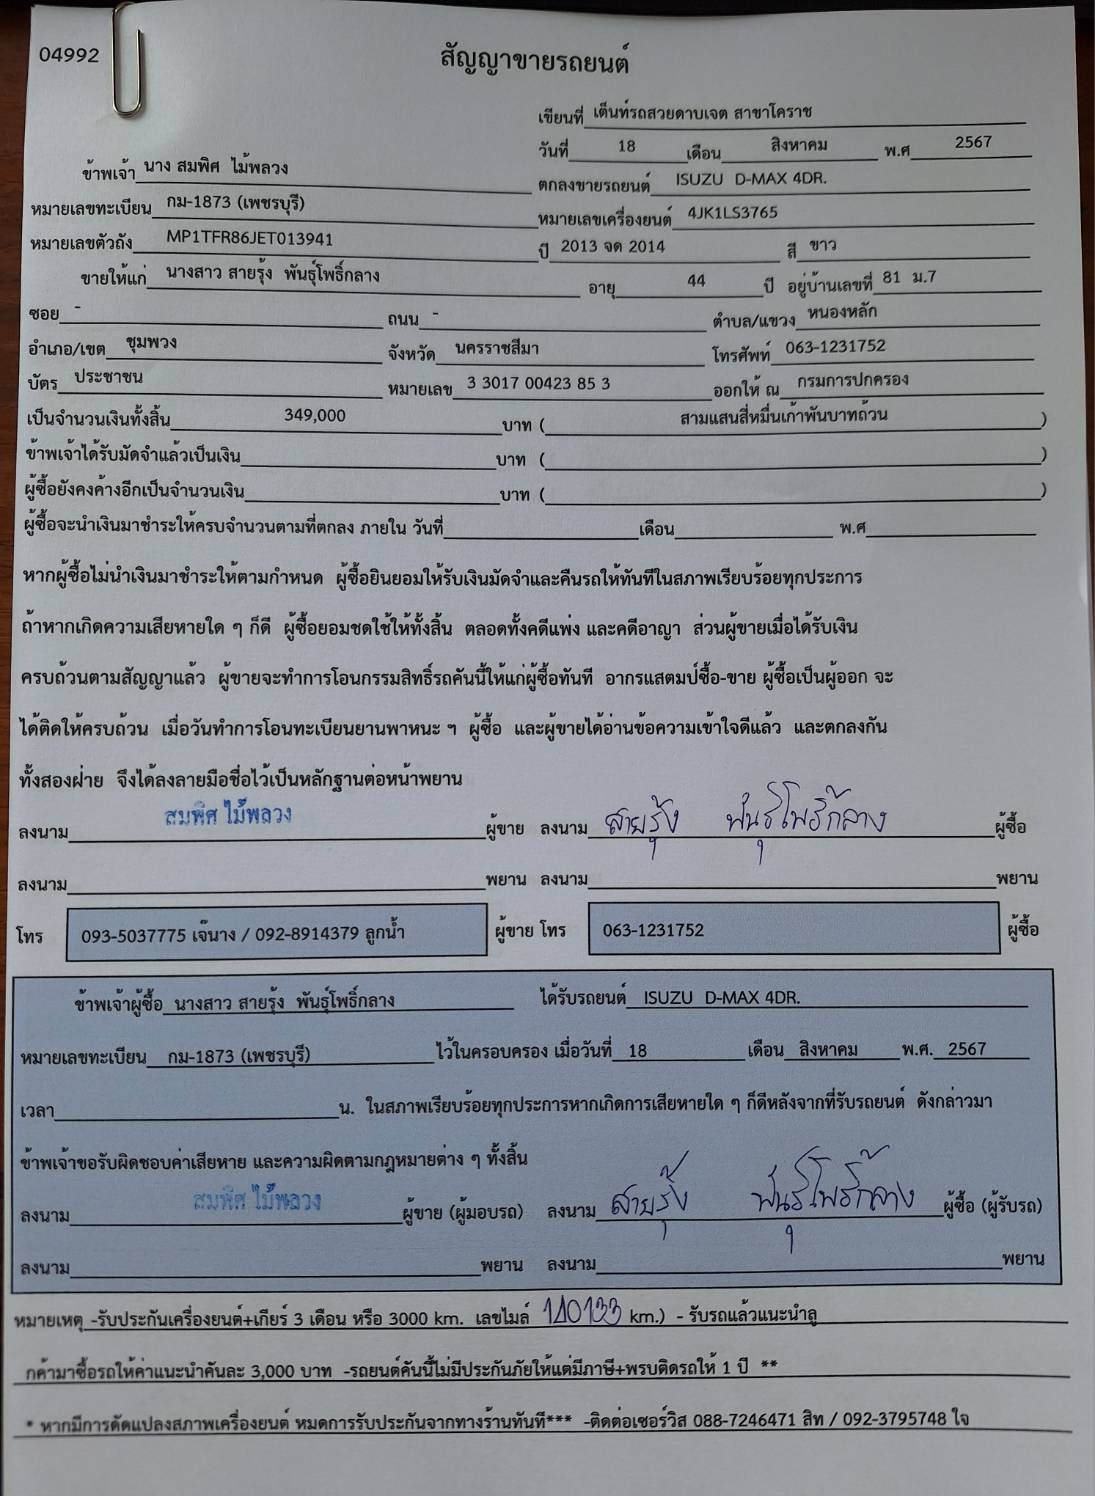 04992
สัญญาขายรถยนต์
เขียนที่ เต็นท์รถสวยดาบเจต สาขาโคราช
วันที่ 18 เดือน สิงหาคม พ.ศ 2567
ข้าพเจ้า นาง สมพิศ ไม้พลวง ตกลงขายรถยนต์ ISUZU D-MAX 4DR.
หมายเลขทะเบียน กม-1873 (เพชรบุรี) หมายเลขเครื่องยนต์ 4JK1LS3765
หมายเลขตัวถัง MP1TFR86JET013941 ปี 2013 จด 2014 สี ขาว
ขายให้แก่ นางสาว สายรุ้ง พันธุ์โพธิ์กลาง อายุ 44 ปี อยู่บ้านเลขที่ 81 ม.7
ซอย - ถนน - ตำบล/แขวง หนองหลัก
อำเภอ/เขต ชุมพวง จังหวัด นครราชสีมา โทรศัพท์ 063-1231752
บัตร ประชาชน หมายเลข 3 3017 00423 85 3 ออกให้ ณ กรมการปกครอง
เป็นจำนวนเงินทั้งสิ้น 349,000 บาท ( สามแสนสี่หมื่นเก้าพันบาทถ้วน )
ข้าพเจ้าได้รับมัดจำแล้วเป็นเงิน บาท ( )
ผู้ซื้อยังคงค้างอีกเป็นจำนวนเงิน บาท ( )
ผู้ซื้อจะนำเงินมาชำระให้ครบจำนวนตามที่ตกลง ภายใน วันที่ เดือน พ.ศ
หากผู้ซื้อไม่นำเงินมาชำระให้ตามกำหนด ผู้ซื้อยินยอมให้รับเงินมัดจำและคืนรถให้ทันทีในสภาพเรียบร้อยทุกประการ
ถ้าหากเกิดความเสียหายใด ๆ ก็ดี ผู้ซื้อยอมชดใช้ให้ทั้งสิ้น ตลอดทั้งคดีแพ่ง และคดีอาญา ส่วนผู้ขายเมื่อได้รับเงิน
ครบถ้วนตามสัญญาแล้ว ผู้ขายจะทำการโอนกรรมสิทธิ์รถคันนี้ให้แก่ผู้ซื้อทันที อากรแสตมป์ซื้อ-ขาย ผู้ซื้อเป็นผู้ออก จะ
ได้ติดให้ครบถ้วน เมื่อวันทำการโอนทะเบียนยานพาหนะ ฯ ผู้ซื้อ และผู้ขายได้อ่านข้อความเข้าใจดีแล้ว และตกลงกัน
ทั้งสองฝ่าย จึงได้ลงลายมือชื่อไว้เป็นหลักฐานต่อหน้าพยาน
ลงนาม สมพิศ ไม้พลวง ผู้ขาย ลงนาม สายรุ้ง พันธุ์โพธิ์กลาง ผู้ซื้อ
ลงนาม พยาน ลงนาม พยาน
โทร 093-5037775 เจ๊นาง / 092-8914379 ลูกน้ำ ผู้ขาย โทร 063-1231752 ผู้ซื้อ
ข้าพเจ้าผู้ซื้อ นางสาว สายรุ้ง พันธุ์โพธิ์กลาง ได้รับรถยนต์ ISUZU D-MAX 4DR.
หมายเลขทะเบียน กม-1873 (เพชรบุรี) ไว้ในครอบครอง เมื่อวันที่ 18 เดือน สิงหาคม พ.ศ. 2567
เวลา น. ในสภาพเรียบร้อยทุกประการหากเกิดการเสียหายใด ๆ ก็ดีหลังจากที่รับรถยนต์ ดังกล่าวมา
ข้าพเจ้าขอรับผิดชอบค่าเสียหาย และความผิดตามกฎหมายต่าง ๆ ทั้งสิ้น
ลงนาม สมพิศ ไม้พลวง ผู้ขาย (ผู้มอบรถ) ลงนาม สายรุ้ง พันธุ์โพธิ์กลาง ผู้ซื้อ (ผู้รับรถ)
ลงนาม พยาน ลงนาม พยาน
หมายเหตุ -รับประกันเครื่องยนต์+เกียร์ 3 เดือน หรือ 3000 km. เลขไมล์ 140133 km.) - รับรถแล้วแนะนำลู
กค้ามาซื้อรถให้ค่าแนะนำคันละ 3,000 บาท -รถยนต์คันนี้ไม่มีประกันภัยให้แต่มีภาษี+พรบติดรถให้ 1 ปี **
* หากมีการดัดแปลงสภาพเครื่องยนต์ หมดการรับประกันจากทางร้านทันที*** -ติดต่อเซอร์วิส 088-7246471 สิท / 092-3795748 ใจ